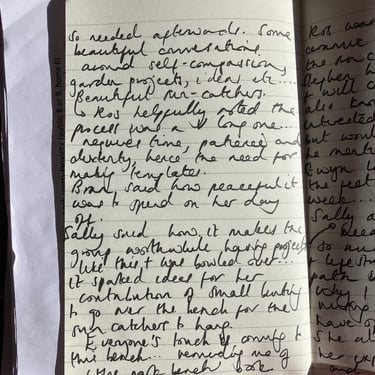 so needed afterwards. Some
beautiful conversations
around self-compassion,
garden projects, ideas etc....
Beautiful sun-catchers.
↳ Ros helpfully noted this
process was a long one...
requires time, patience and
dexterity, hence the need for
making templates.
said how peaceful it
was to spend on her day
off.
Sally said how, it makes the
group worthwhile having projects
like this + was bowled over...
it sparked ideas for her
contribution of small bunting
to go over the bench for the
sun catchers to hang.
Everyone's touch is coming to
this bench... reminding me of
bench' book.
Ros was
ceramic
the non
Stephen
I will
also kno
interested
but wou
he ment
the feet
week...
Sally a
so mu
+ life st
path
why I
have
She al
her
and